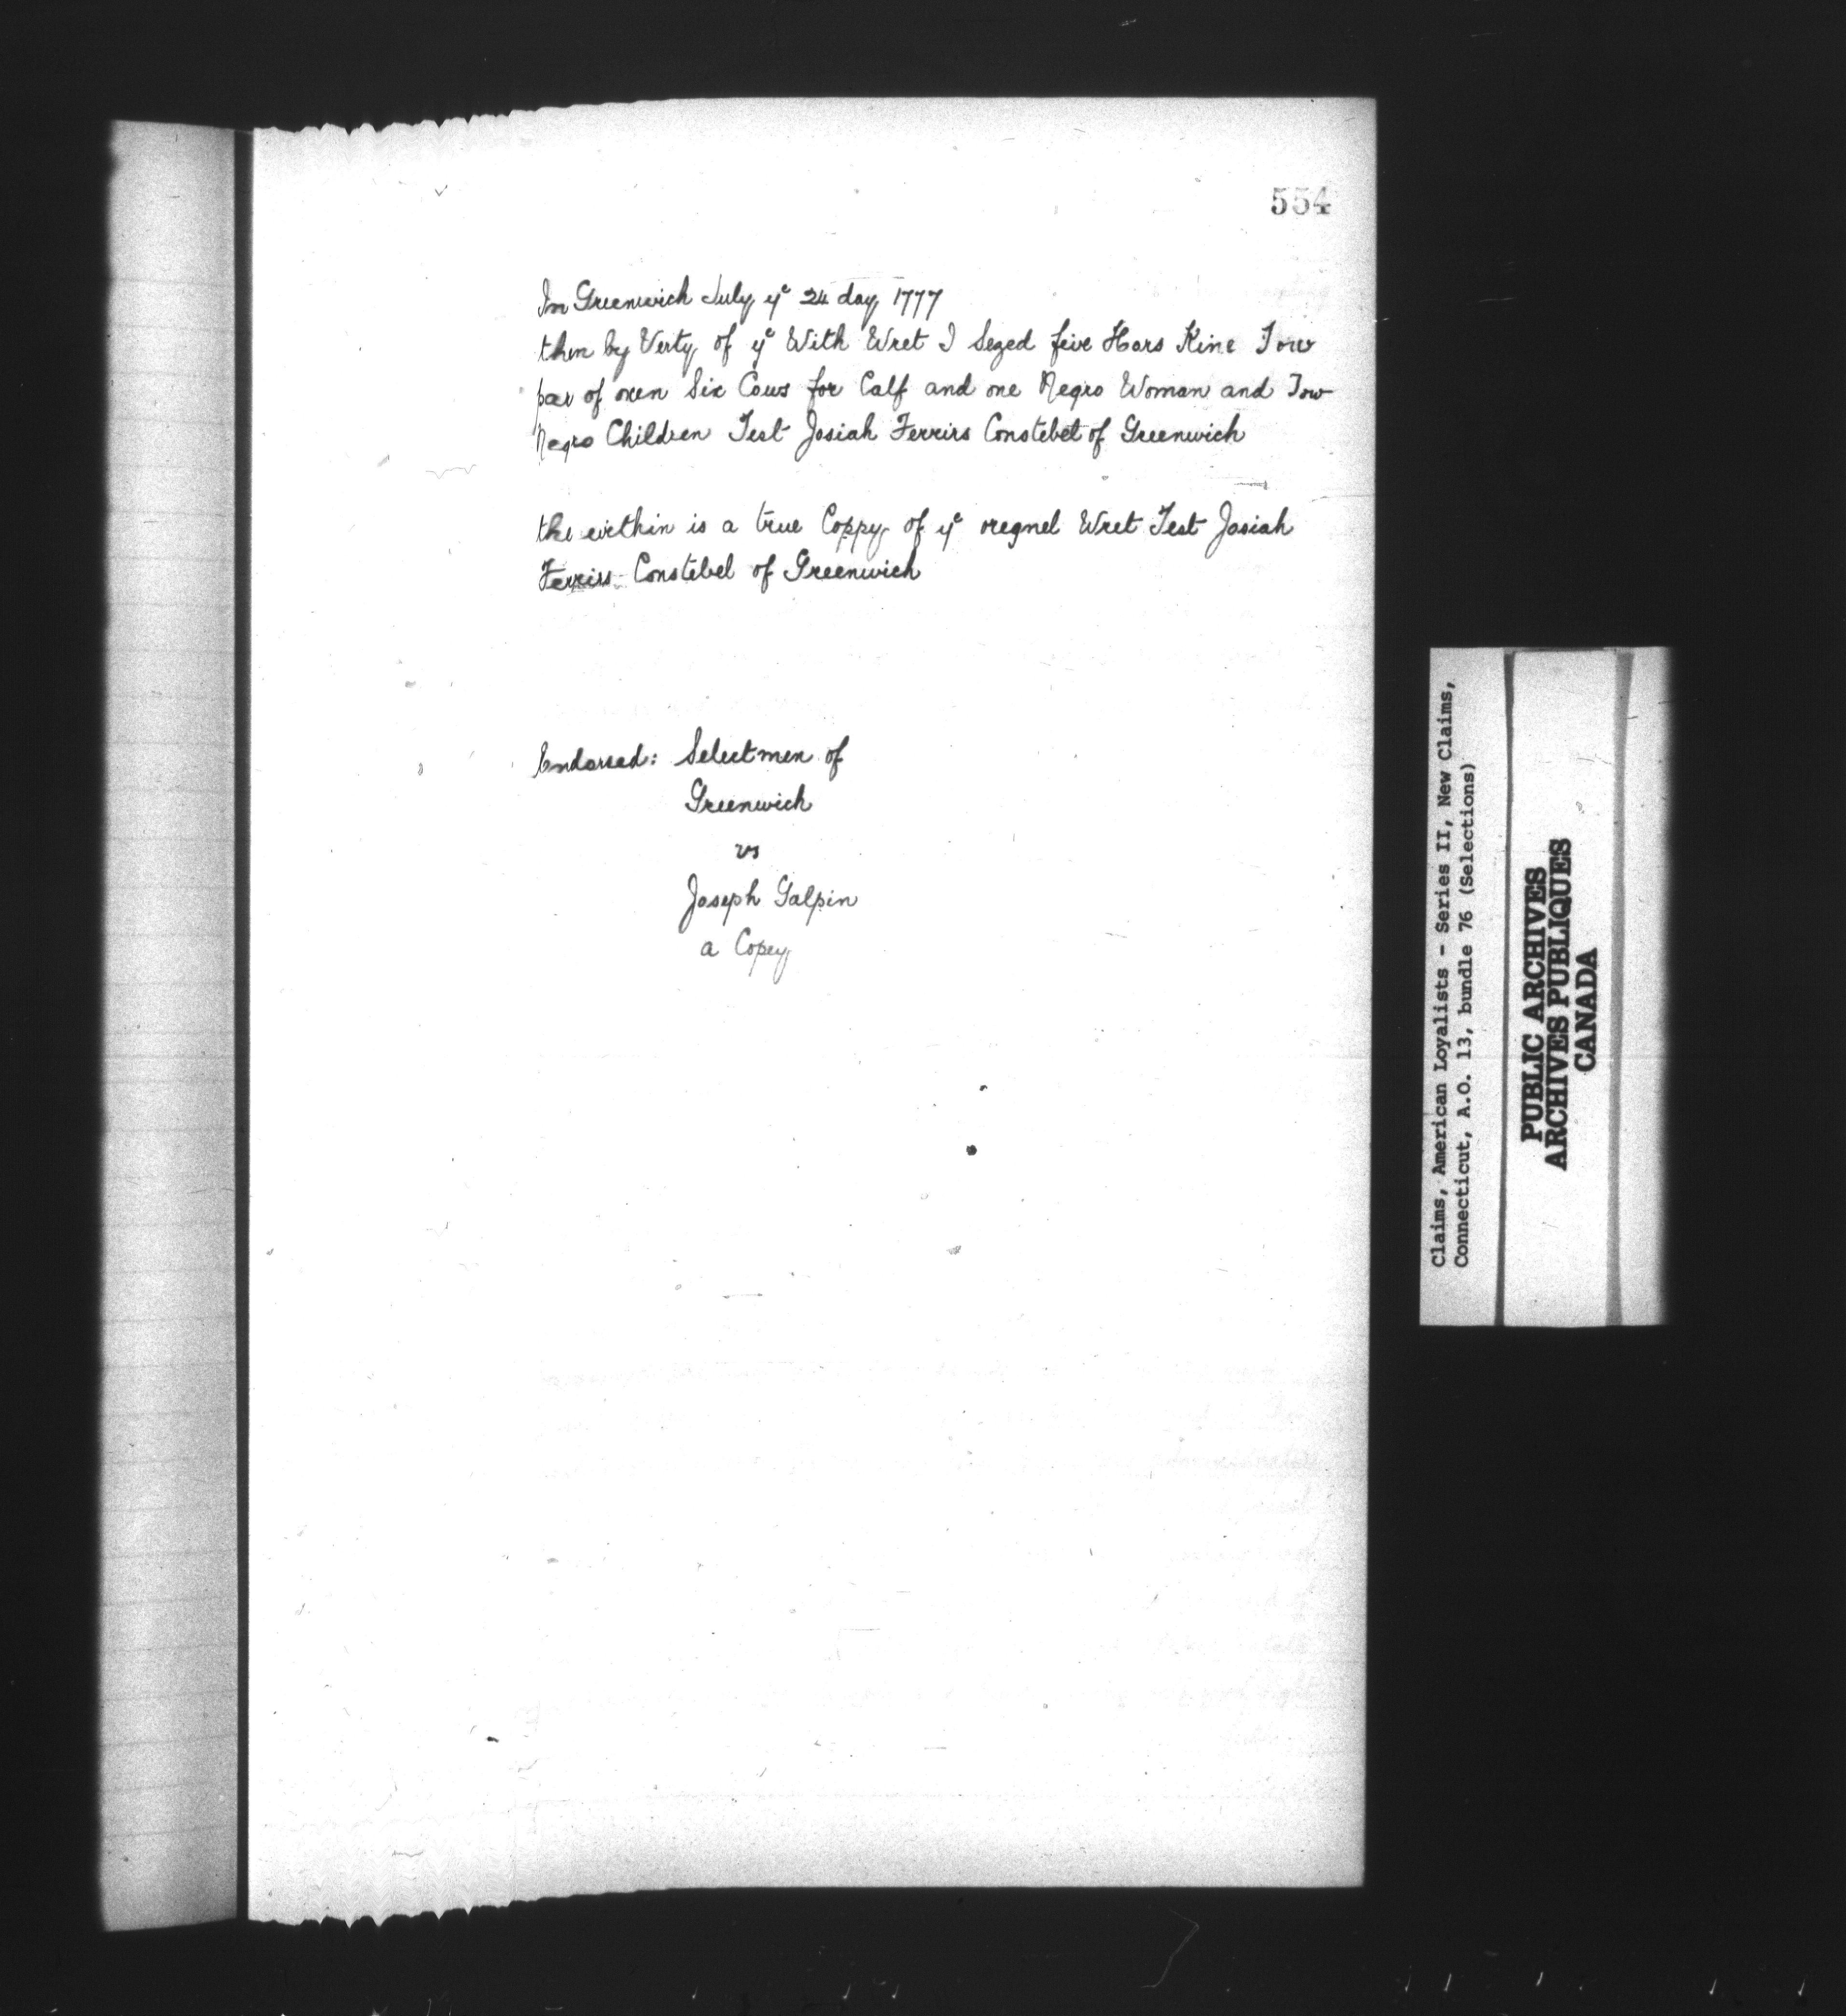 554
In Greenwich July yᵉ 24 day 1777
then by Verty of yᵉ With Wret I Sezed feive Hors Kine Tow
paer of oxen Six Cows for Calf and one Negro Woman and Tow
Negro Children Test Josiah Ferrirs Constebel of Greenwich
the within is a true Coppy of yᵉ oregnel Wret Test Josiah
Ferrirs Constebel of Greenwich
Endorsed: Selectmen of
Greenwich
vs
Joseph Galpin
a Copey
Claims, American Loyalists - Series II, New Claims,
Connecticut, A.O. 13, bundle 76 (Selections)
PUBLIC ARCHIVES
ARCHIVES PUBLIQUES
CANADA